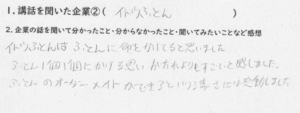 1. 講話を聞いた企業②( イトウふとん )
2. 企業の話を聞いて分かったこと・分からなかったこと・聞いてみたいことなど感想
イトウふとんは ふとんに命をかけてると思いました
ふとん1個1個にかける思い がすごいと感じました。
ふとんのオーダーメイドができるという凄さに感動しました